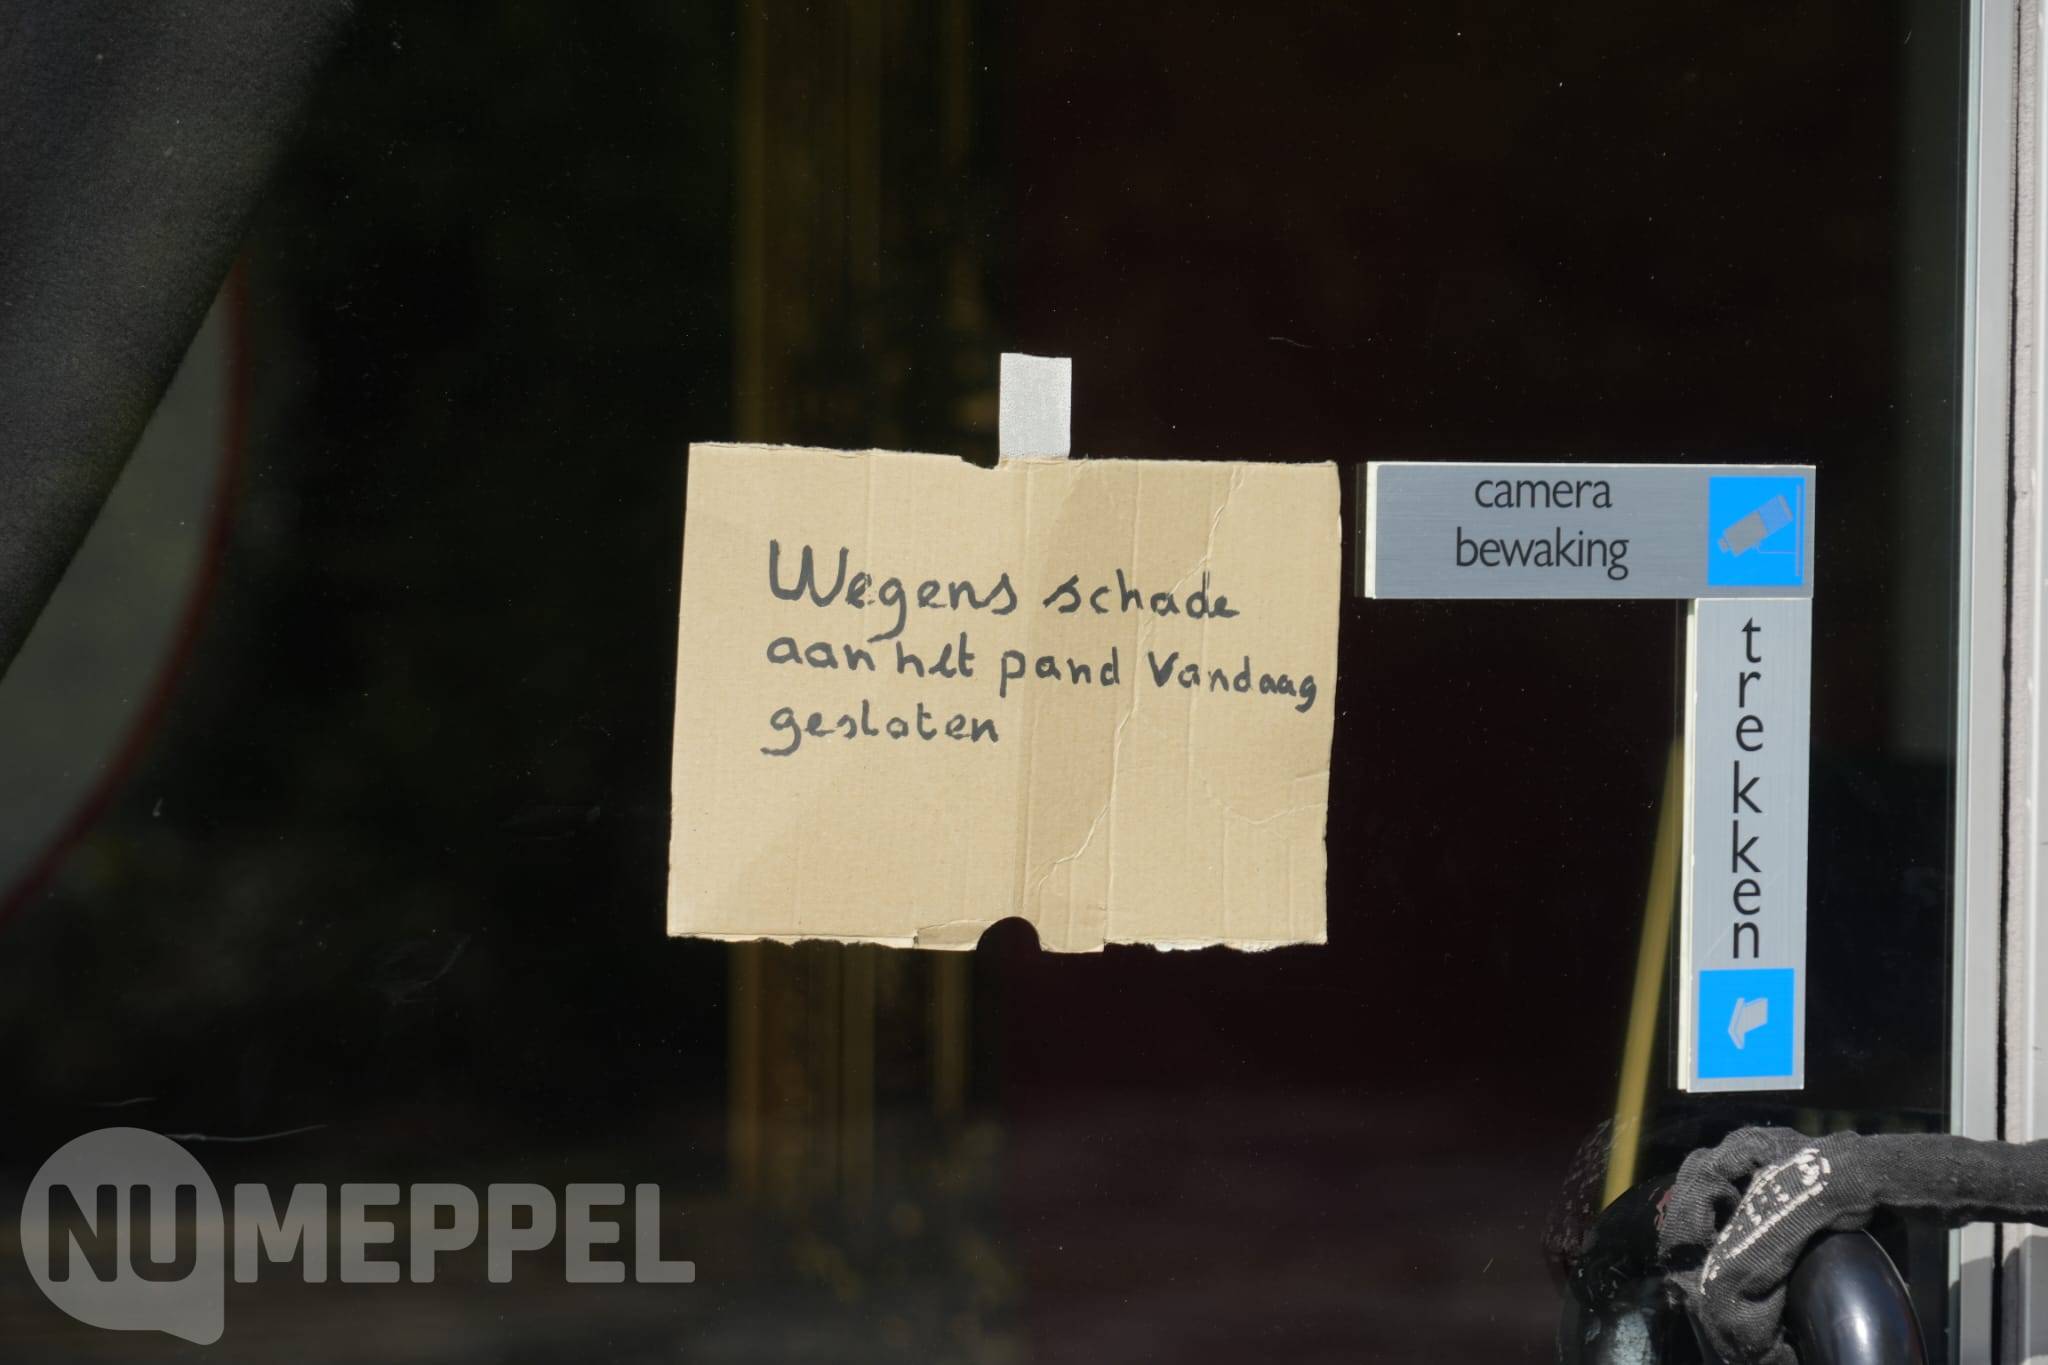 Wegens schade
aan het pand vandaag
gesloten
camera
bewaking
trekken
NUMEPPEL